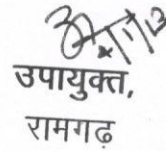 उपायुक्त,
रामगढ़